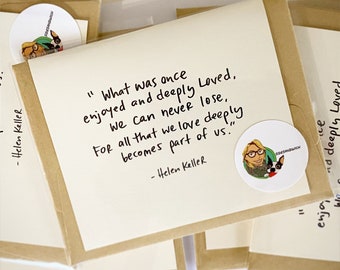 " What was once
enjoyed and deeply Loved,
we can never lose,
For all that we love deeply
becomes part of us."
- Helen Keller
- Helen Keller